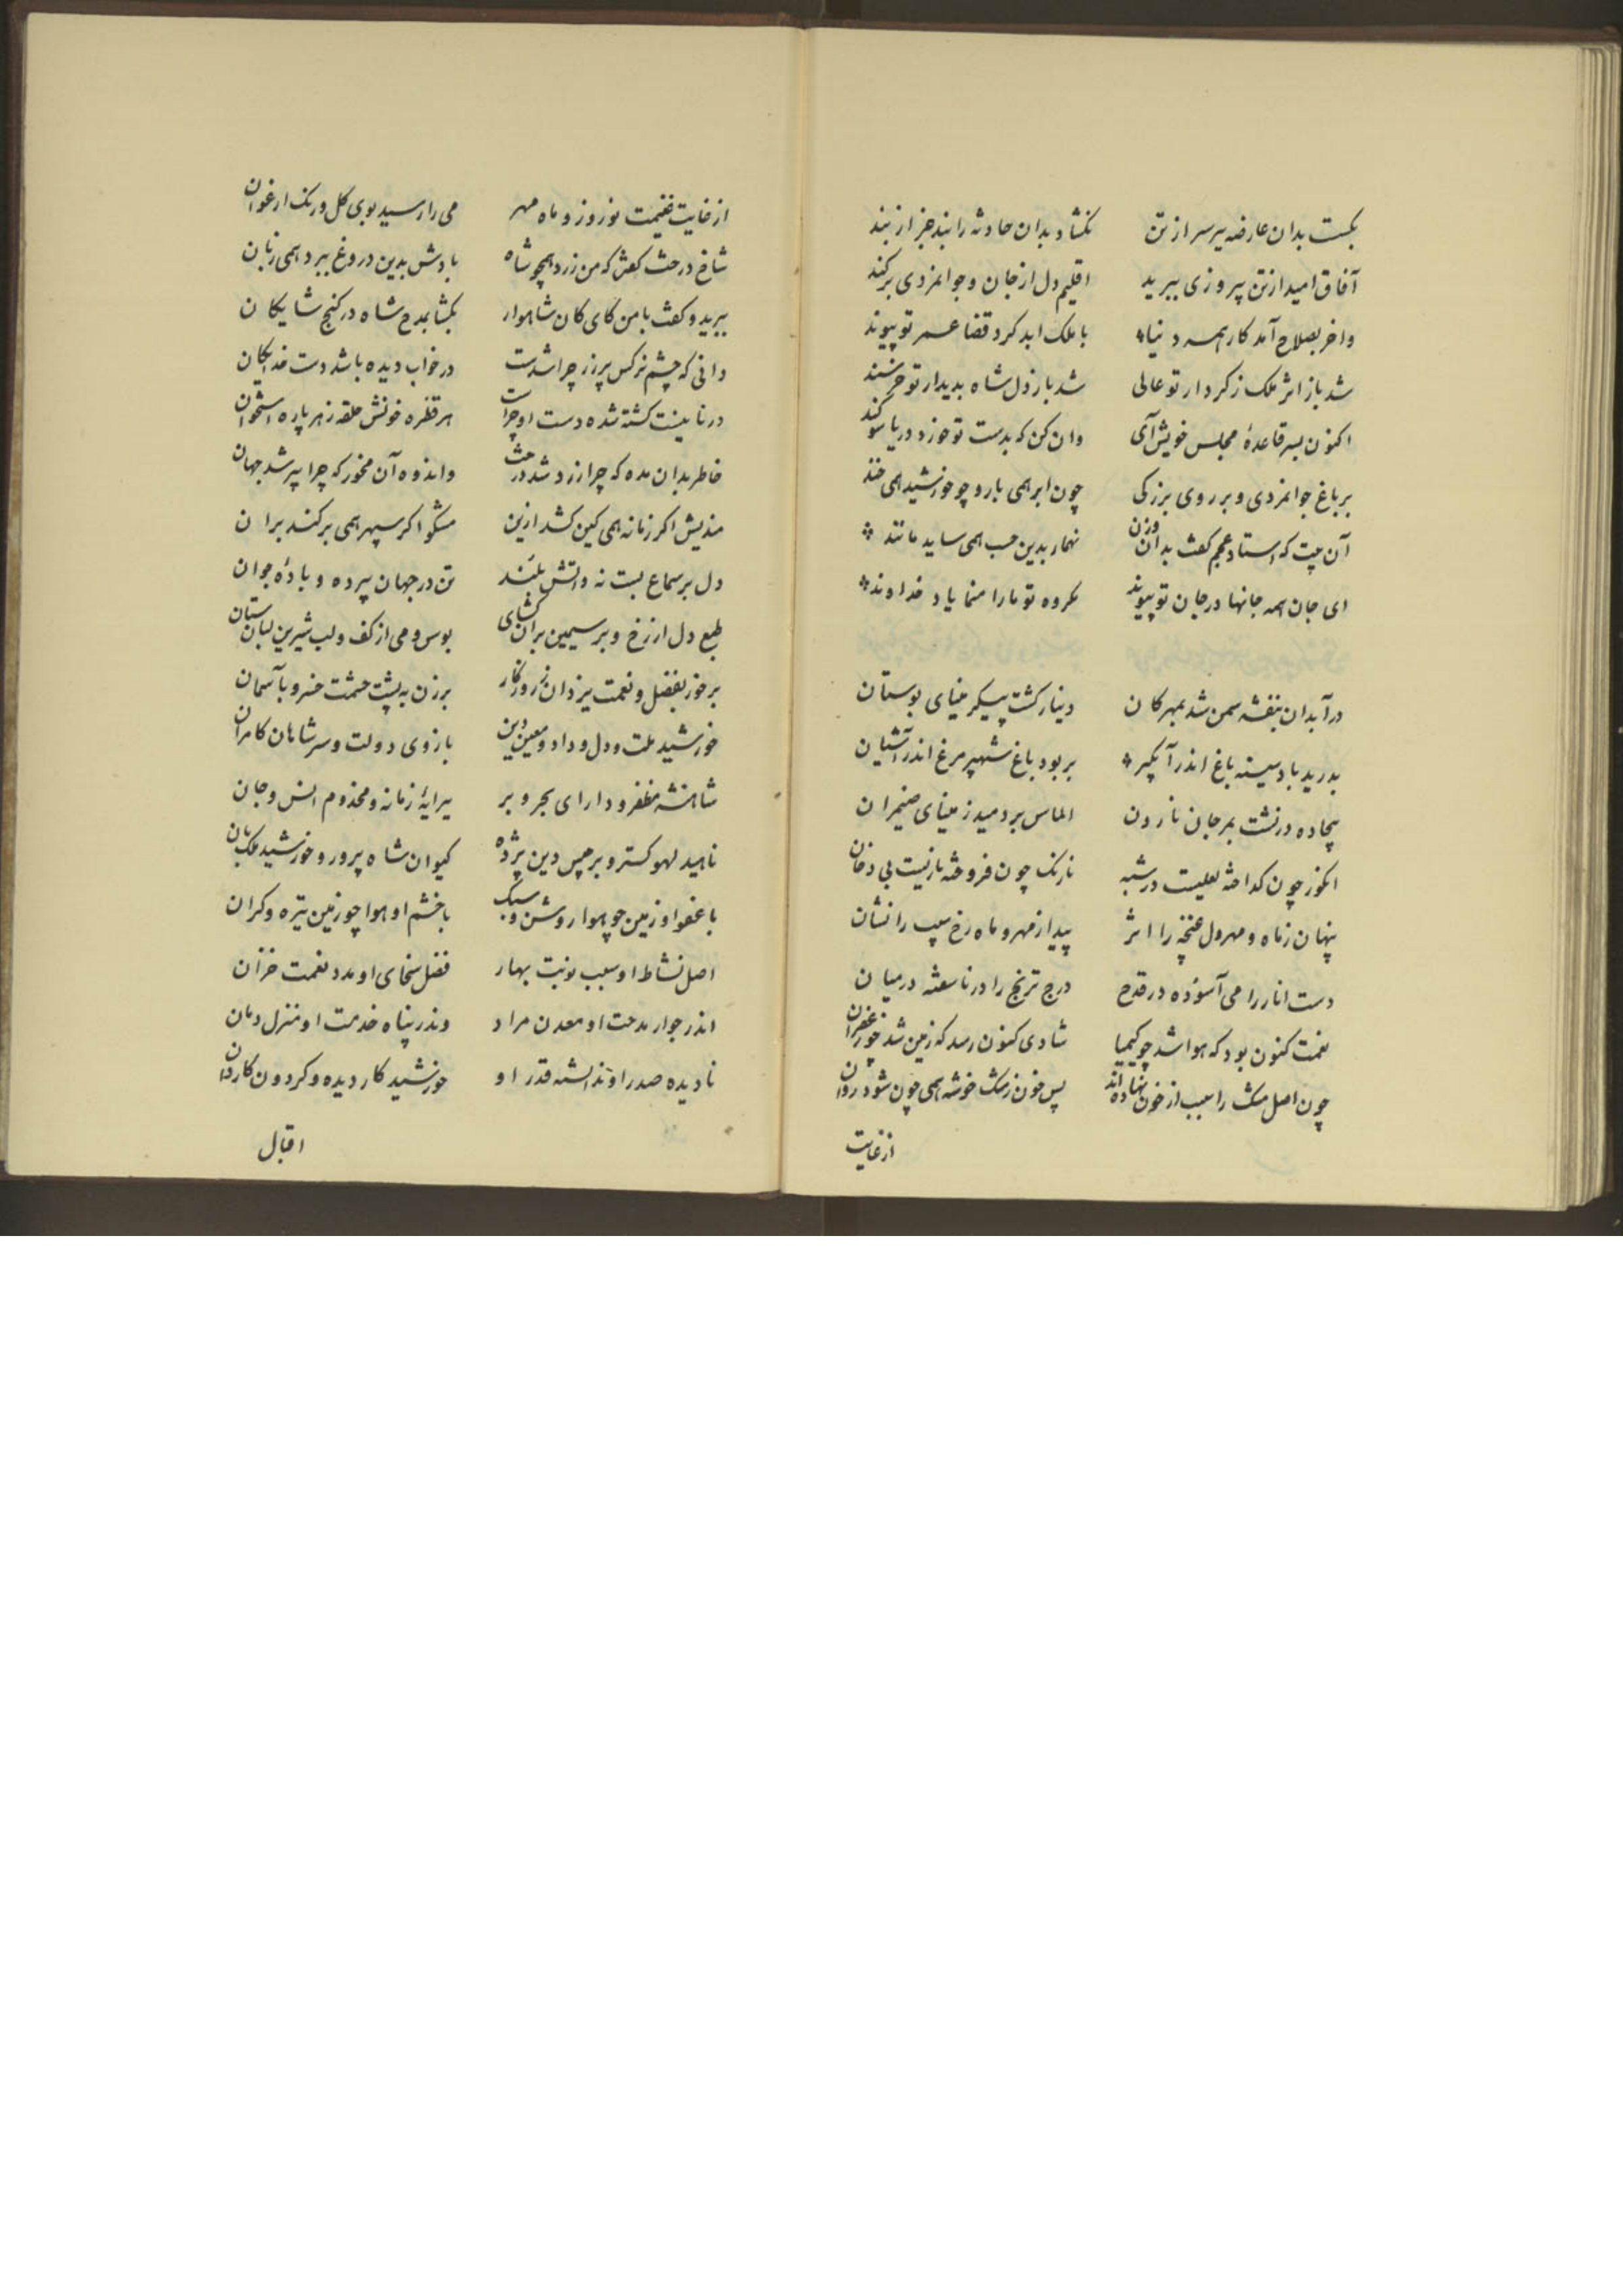 بگسست بدان عارضه پیر سر از تن نگشاد بدان حادثه را بند جز از بند
آفاق امید از تن پیروزی ببرید اقلیم دل از جان و جوانمردی برکند
واخر بصلاح آمد کار همه دنیا با ملک ابد کرد قضا عمر تو پیوند
شد باز اثر ملک ز کردار تو عالی شد باز دل شاه بدیدار تو خرسند
اکنون بسر قاعدهٔ مجلس خویش آی وان کن که بدست تو خورد دریا سوکند
بر باغ جوانمردی و بر روی بزرکی چون ابر همی بار و چو خورشید همی خند
آن بیت که استاد عجم کفت بدان وزن نهمار بدین حسب همی ساید مانند
ای جان همه جانها در جان تو پیوند مکروه تو ما را منمایاد خداوند
در آبدان بنفشه سمن شد بمهرکان دینار کشت پیکر مینای بوستان
بدرید باد سینه باغ اندر آبگیر بربود باغ شهپر مرغ اندر آشیان
بیجاده درنشت بمرجان نارون الماس بردمید ز مینای ضیمران
انکور چون کداخته لعلیست در شبه نارنک چون فروخته ناریست بی دخان
پنهان ز ماه و مهر دل غنچه را اثر پیدا ز مهر و ماه رخ سیب را نشان
دست انار را می آسوده در قدح درج ترنج را در ناسفته در میان
نعمت کنون بود که هوا شد چو کیمیا شادی کنون رسد که زمین شد چو زعفران
چون اصل مشک را سبب از خون نهاده اند پس خون ز مشک خوشه همی چون شود روان
از غایت
از غایت غنیمت نوروز و ماه مهر می را رسید بوی کل و رنک ارغوان
شاخ درخت کفتش که من زرد همچو شاه بادش بدین دروغ ببرد همی زبان
ببرید و کفت با من کای کان شاهوار بکشا بمدح شاه در کنج شایکان
دانی که چشم نرکس پرزر چرا شدست در خواب دیده باشد دست خدایکان
در نابینت کشته شده دست او چراست هر قطره خونش حلقه ز هر پاره استخوان
خاطر بدان مده که چرا زرد شد درخت واندوه آن مخور که چرا پیر شد جهان
مندیش اکر زمانه همی کین کشد ازین مشکو اکر سپهر همی برکند بران
دل بر سماع بست نه واتش بلند تن در جهان پیر ده و بادهٔ جوان
طبع دل از رخ و بر سیمین بران کشای بوس و می از کف و لب شیرین لبان ستان
برخور بفضل و نعمت یزدان ز روزکار برزن به پشت حشمت خسرو بآسمان
خورشید ملت و دل و داد و معین دین بازوی دولت و سر شاهان کامران
شاهنشه مظفر و دارای بحر و بر پیرایهٔ زمانه و مخدوم انس و جان
ناهید لهو کستر و برجیس دین پژوه کیوان شاه پرور و خورشید ملک بان
با عفو او زمین چو هوا روشن و سبک با خشم او هوا چو زمین تیره و کران
اصل نشاط او سبب نوبت بهار فضل سخای او مدد نعمت خزان
اندر جوار مدحت او معدن مراد وندر پناه خدمت او منزل امان
نادیده صدر او ندانسته قدر او خورشید کار دیده و کردون کاردان
اقبال